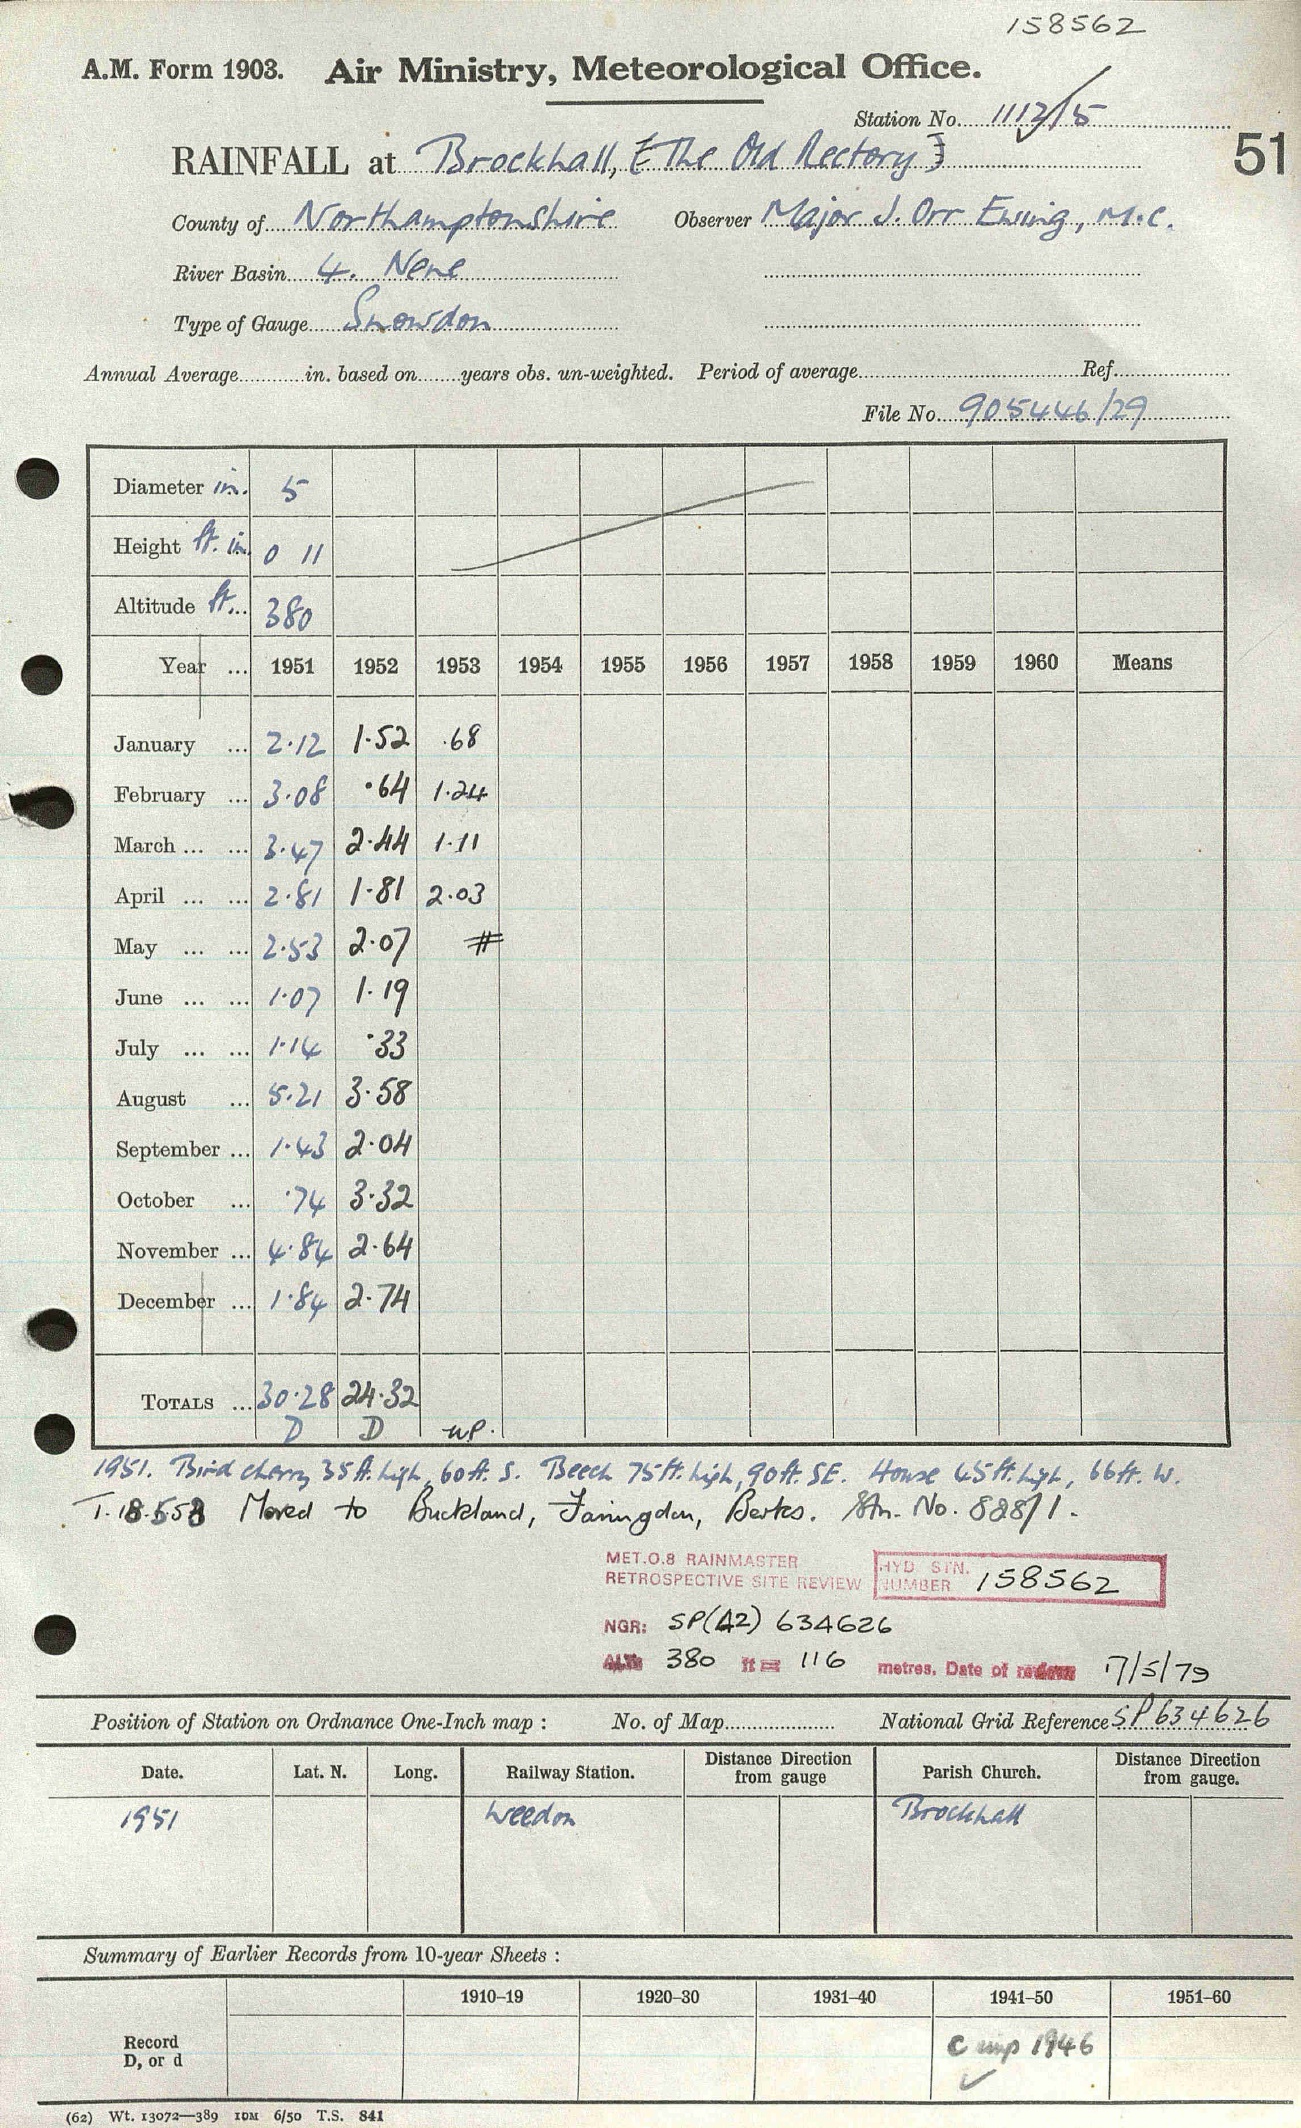 158562
A.M. Form 1903. Air Ministry, Meteorological Office.
Station No. 1112/5
51
RAINFALL at Brockhall, [The Old Rectory]
County of Northamptonshire Observer Major J. Orr Ewing, M.C.
River Basin 4. Nene
Type of Gauge Snowdon
Annual Average in. based on years obs. un-weighted. Period of average Ref.
File No. 905446/29
Diameter in. 5
Height ft. in. 0 11
Altitude ft... 380
Year ... 1951 1952 1953 1954 1955 1956 1957 1958 1959 1960 Means
January ... 2.12 1.52 .68
February ... 3.08 .64 1.24
March ... ... 3.47 2.44 1.11
April ... ... 2.81 1.81 2.03
May ... ... 2.53 2.07 #
June ... ... 1.07 1.19
July ... ... 1.14 .33
August ... 5.21 3.58
September ... 1.43 2.04
October ... .74 3.32
November ... 4.84 2.64
December ... 1.84 2.74
TOTALS ... 30.28 24.32
D D
1951. Bird cherry 35ft. high, 60ft. S. Beech 75ft. high, 90ft. SE. House 45ft. high, 66ft. W.
Moved to Buckland, Faringdon, Berks. Stn. No. 828/1.
MET.O.8 RAINMASTER
RETROSPECTIVE SITE REVIEW
HYD STN. NUMBER 158562
NGR: SP(42) 634626
ALT: 380 ft = 116 metres. Date of review 17/5/79
Position of Station on Ordnance One-Inch map : No. of Map National Grid Reference SP634626
Date. Lat. N. Long. Railway Station. Distance Direction from gauge Parish Church. Distance Direction from gauge.
1951 Weedon Brockhall
Summary of Earlier Records from 10-year Sheets :
1910–19 1920–30 1931–40 1941–50 1951–60
Record
D, or d
C 1946
(62) Wt. 13072—389 IDM 6/50 T.S. 841